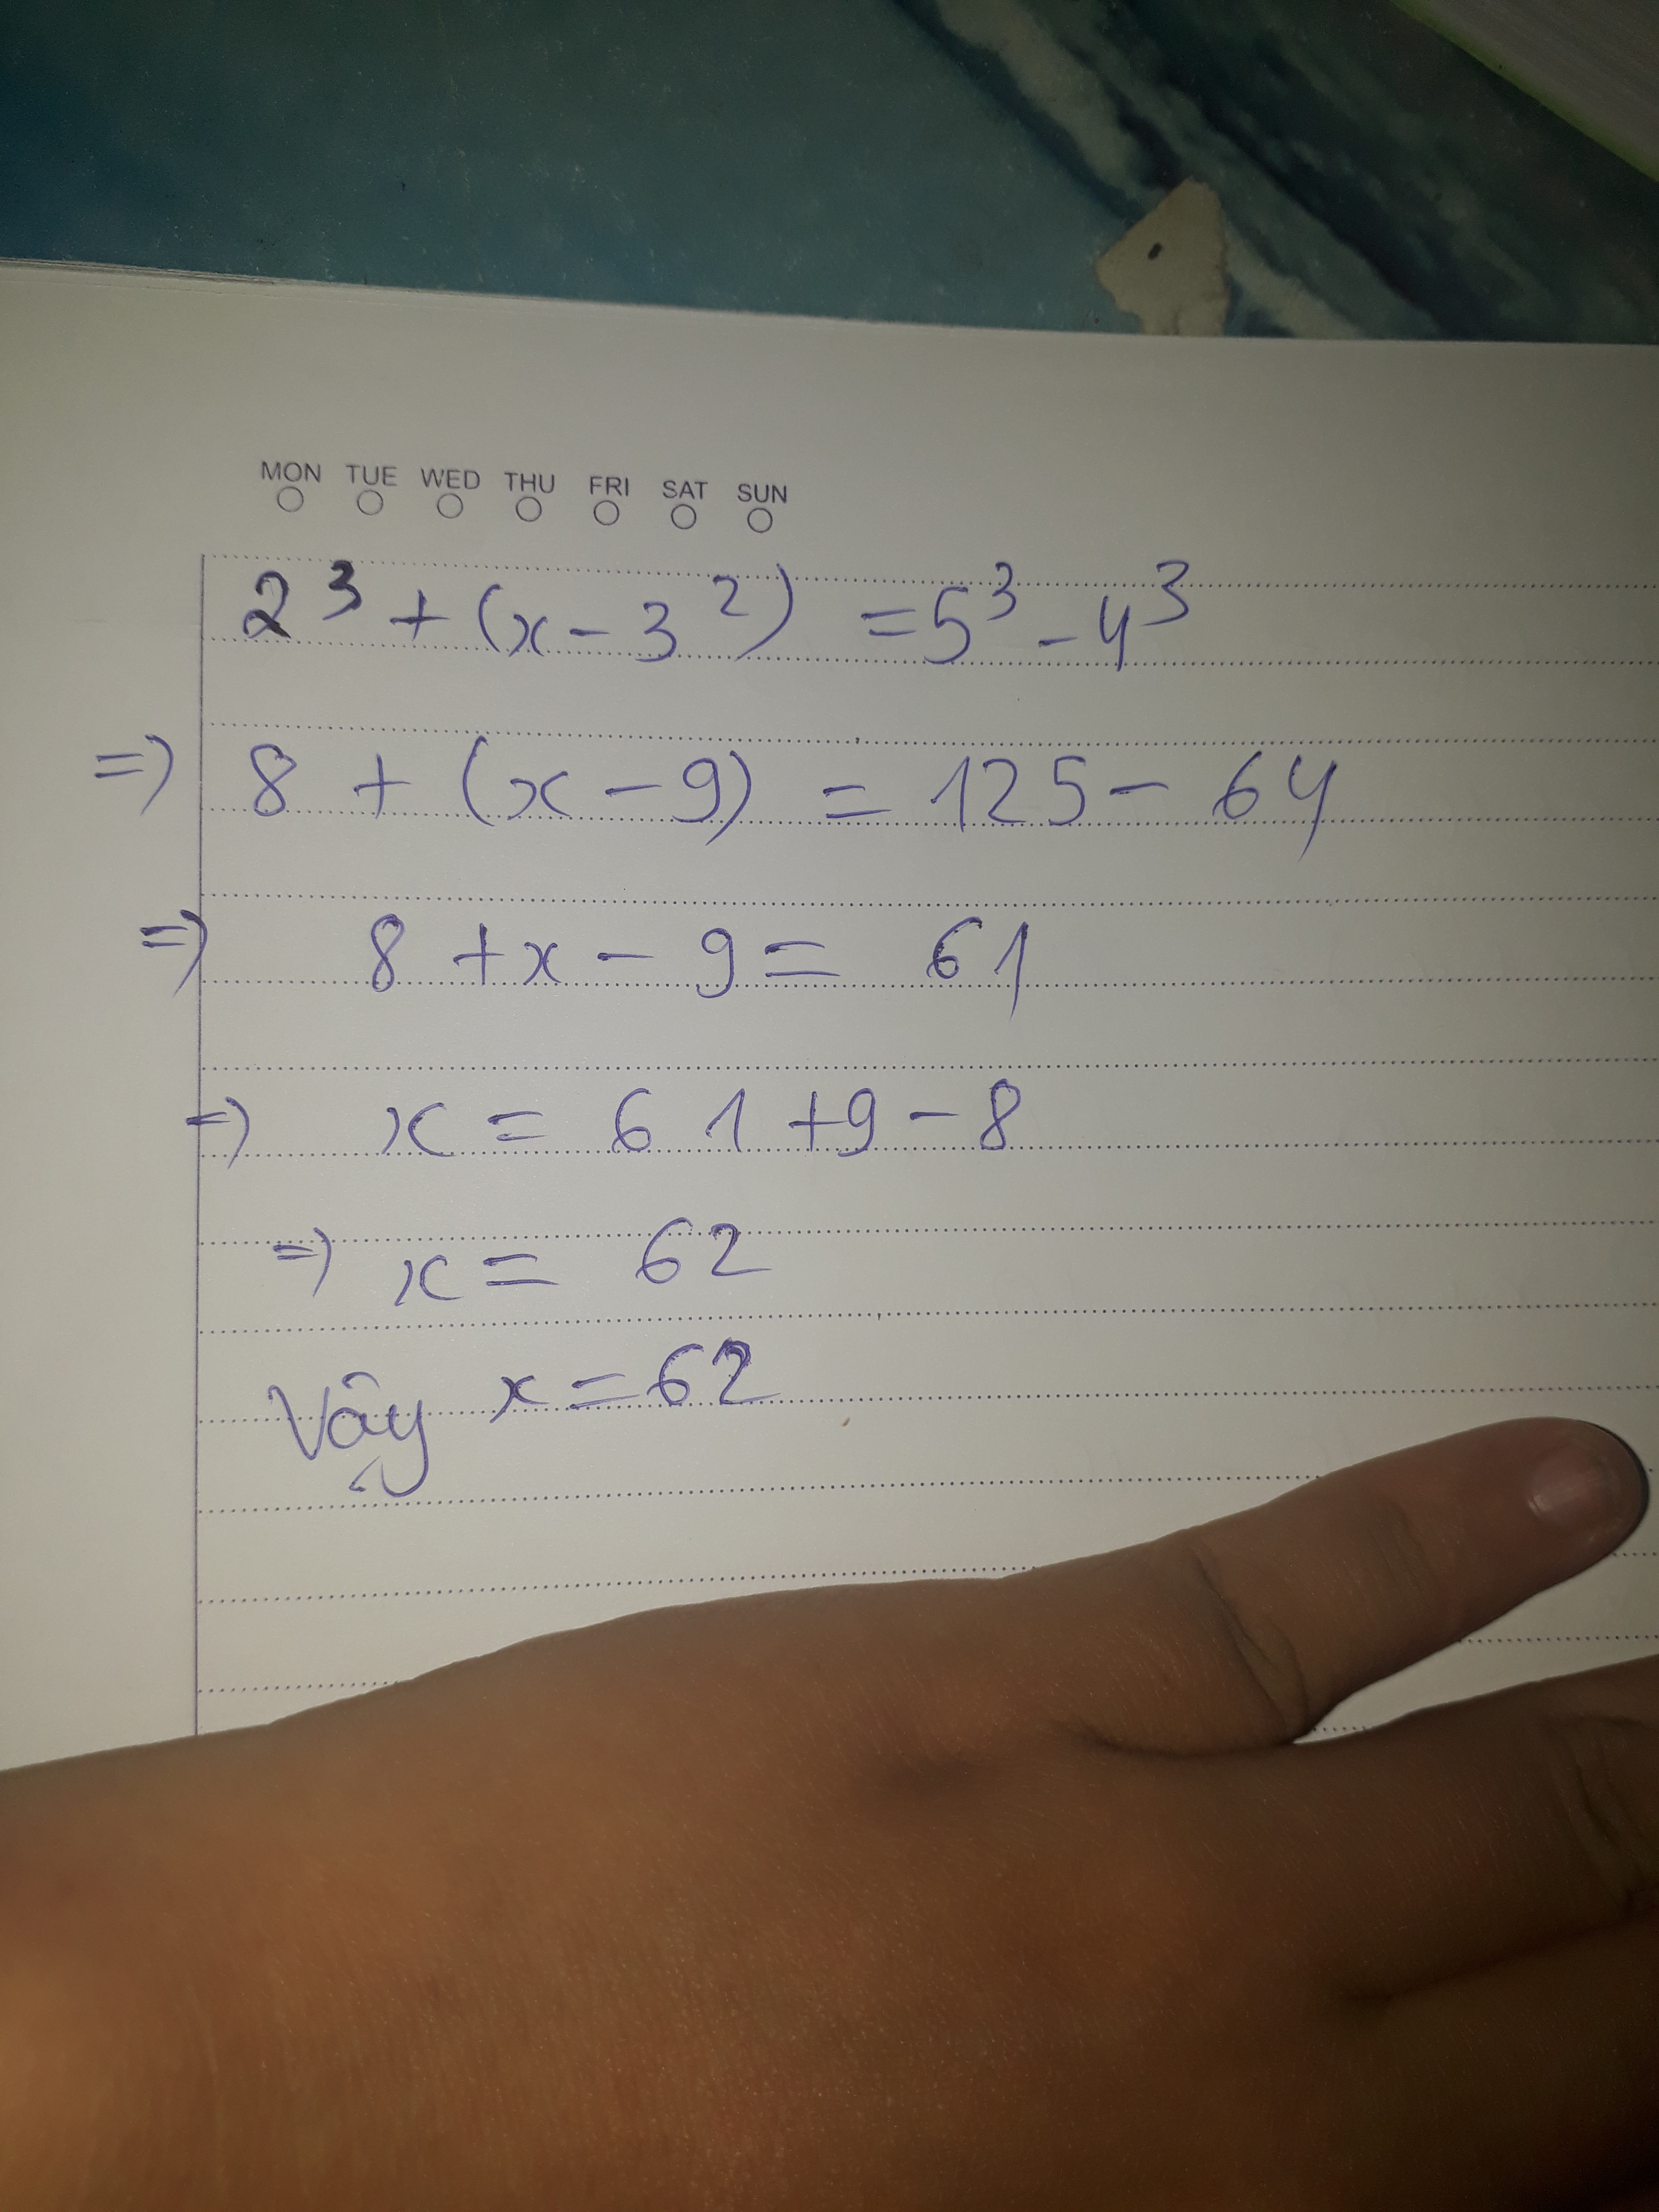 MON TUE WED THU FRI SAT SUN
2³ + (x - 3²) = 5³ - 4³
=> 8 + (x - 9) = 125 - 64
=> 8 + x - 9 = 61
=> x = 61 + 9 - 8
=> x = 62
Vậy x = 62